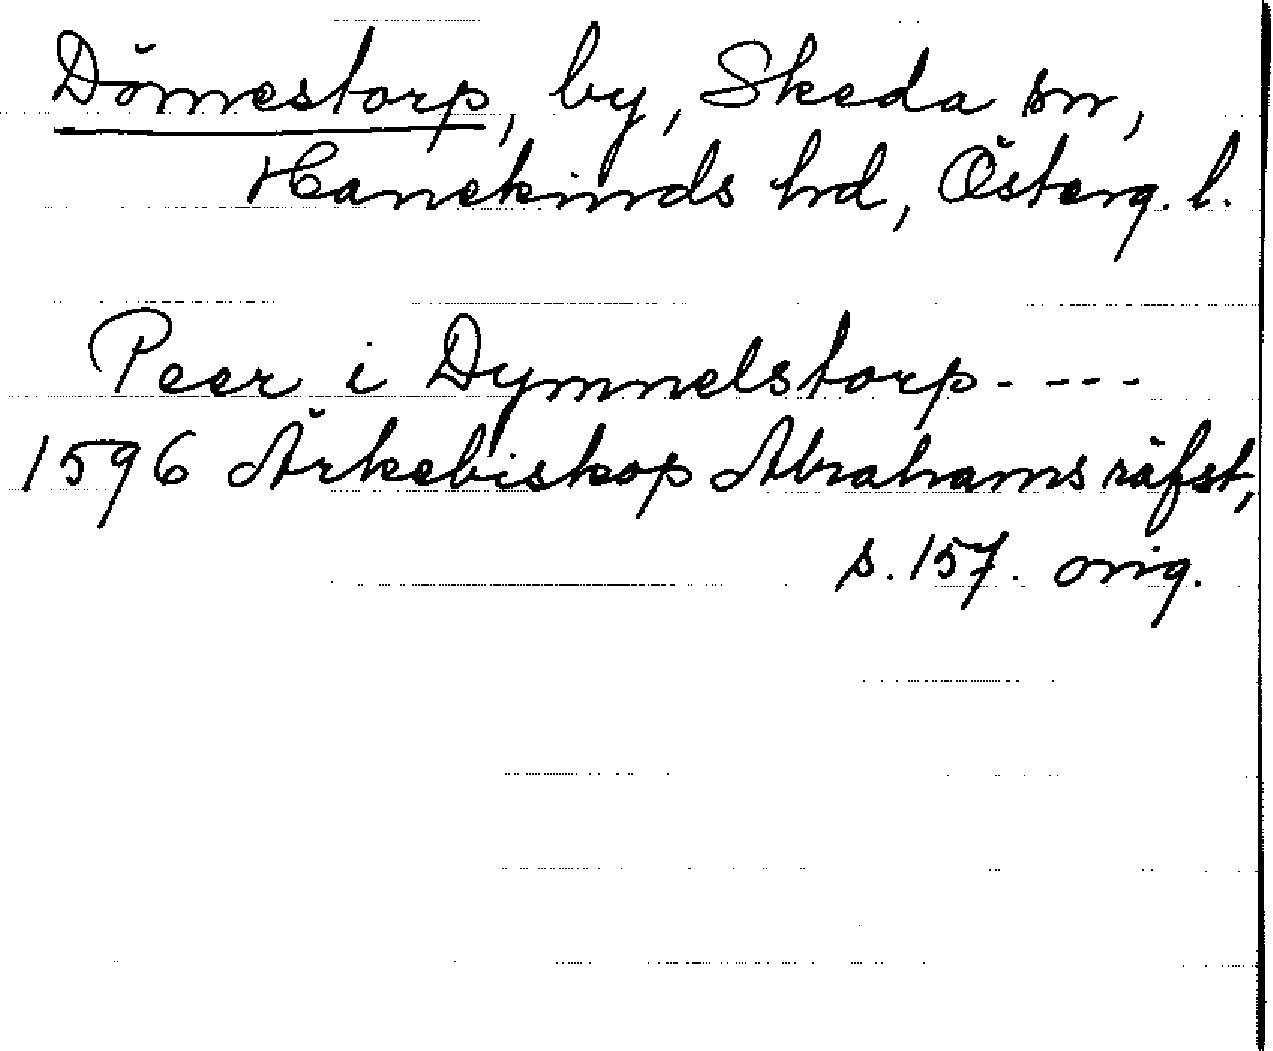 Dömestorp, by, Skeda sn,
Hanekinds hd, Österg. l.
Peer i Dymmelstorp - - - -
1596 Ärkebiskop Abrahams räfst,
s. 157. orig.